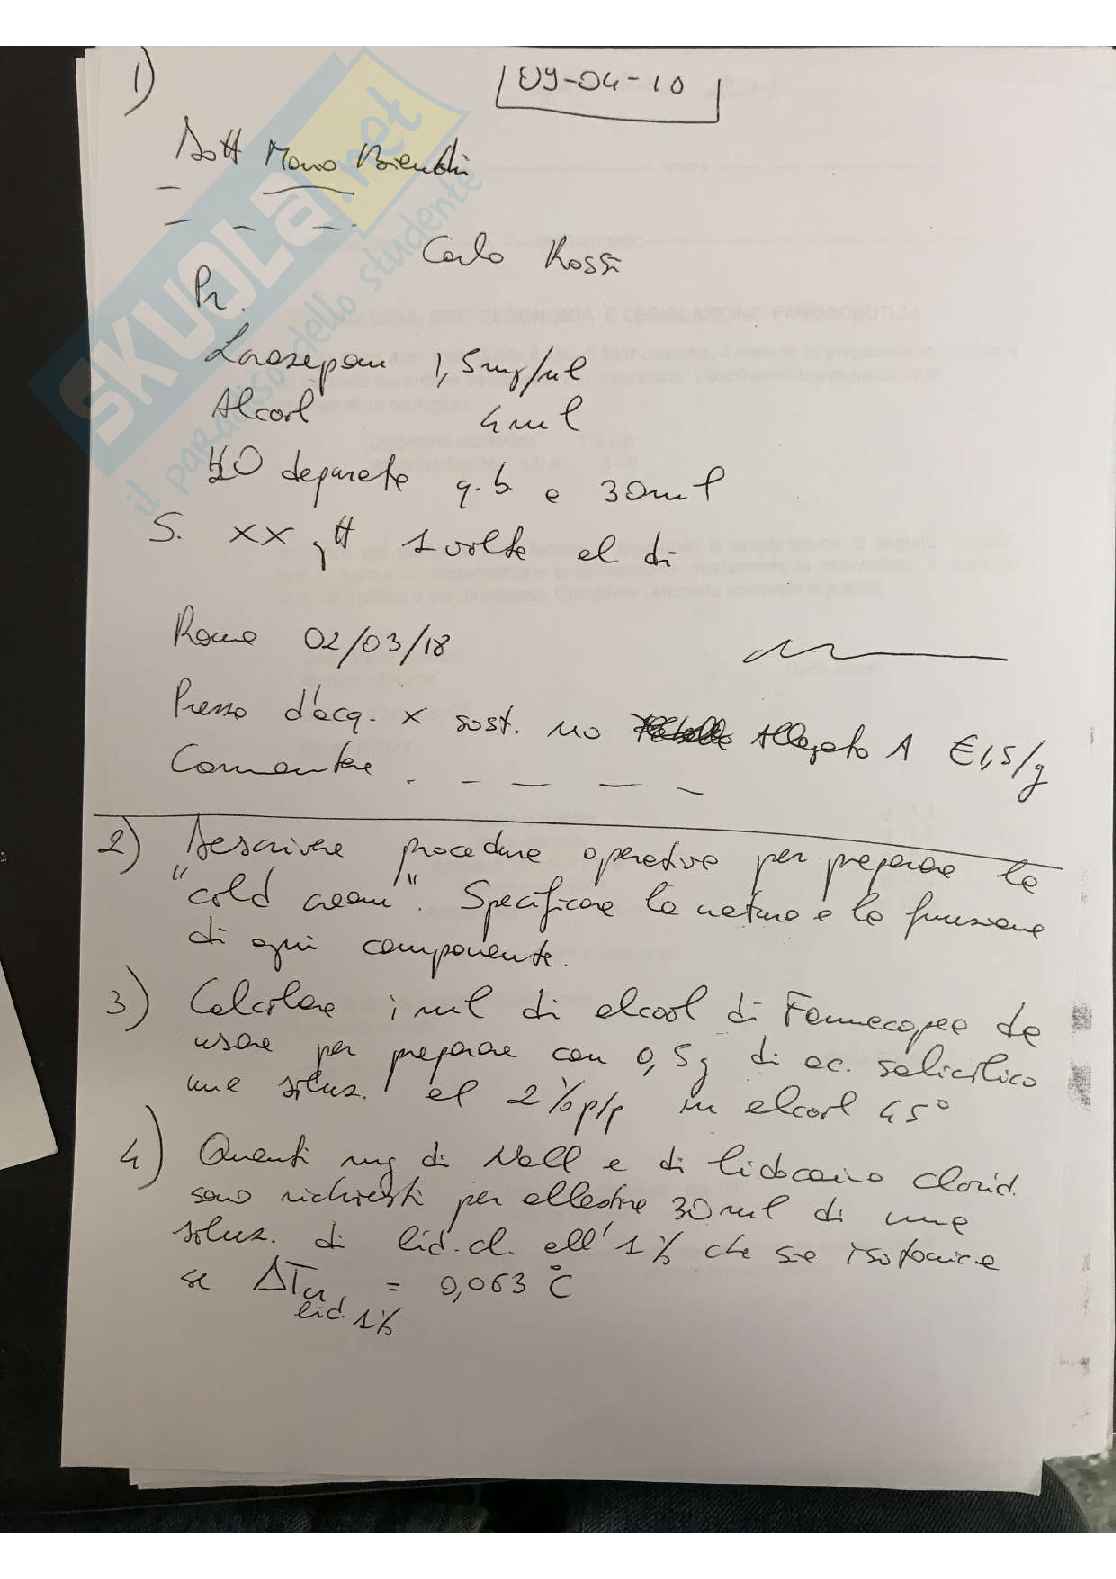 1)
09-04-10
Dott Mario Bianchi
Carlo Rossi
Pr.
Lorazepam 1,5mg/ml
Alcool 4ml
H2O depurata q.b. a 30ml
S. XX gtt 1 volta al di
Roma 02/03/18
Prezzo d'acq. x sost. no Allegato A €1,5/g
Commentare
2) Descrivere procedure operative per preparare la
"cold cream". Specificare la natura e la funzione
di ogni componente.
3) Calcolare i ml di alcool di Farmacopea da
usare per preparare con 0,5g di ac. salicilico
una soluz. al 2% p/p in alcool 45°
4) Quanti mg di NaCl e di lidocaina clorid.
sono richiesti per allestire 30ml di una
soluz. di lid. cl. all'1% che sia isotonica
se ΔTcr lid. 1% = 0,063 °C
SKUOLA.net
il paradiso dello studente